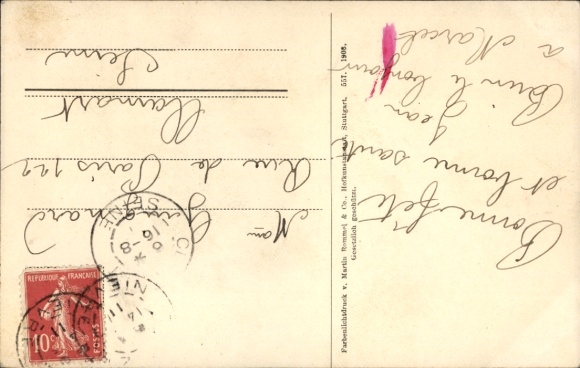 Bonne fête
et bonne santé
Jean
Bien le bonjour
à Marcel
Farbenlichtdruck v. Martin Rommel & Co., Hofkunstanstalt, Stuttgart. 557. 1908.
Gesetzlich geschützt.
Mme
Rue de Paris 122
Clamart
Seine
SEINE
16-8
REPUBLIQUE FRANÇAISE
10c
POSTES